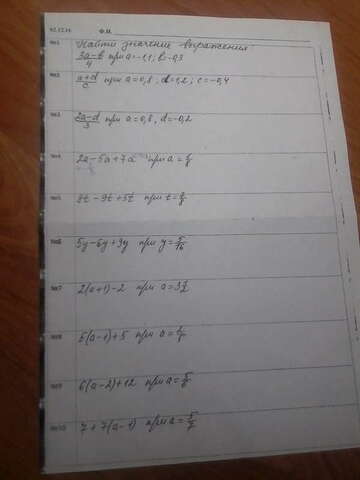 Ф.И.
№1 Найти значение выражения:
3a-b/4 при a=-1,1; b=-0,3
№2 a+d/c при a=0,8, d=1,2; c=-0,4
№3 2a-d/3 при a=0,8, d=-0,2
№4 2a-5a+7a при a=
№5 8t-9t+5t при t=
№6 5y-6y+9y при y=5/16
№7 2(a+1)-2 при a=
№8 5(a-1)+5 при a=
№9 6(a-2)+12 при a=5/6
№10 7+7(a-1) при a=5/7